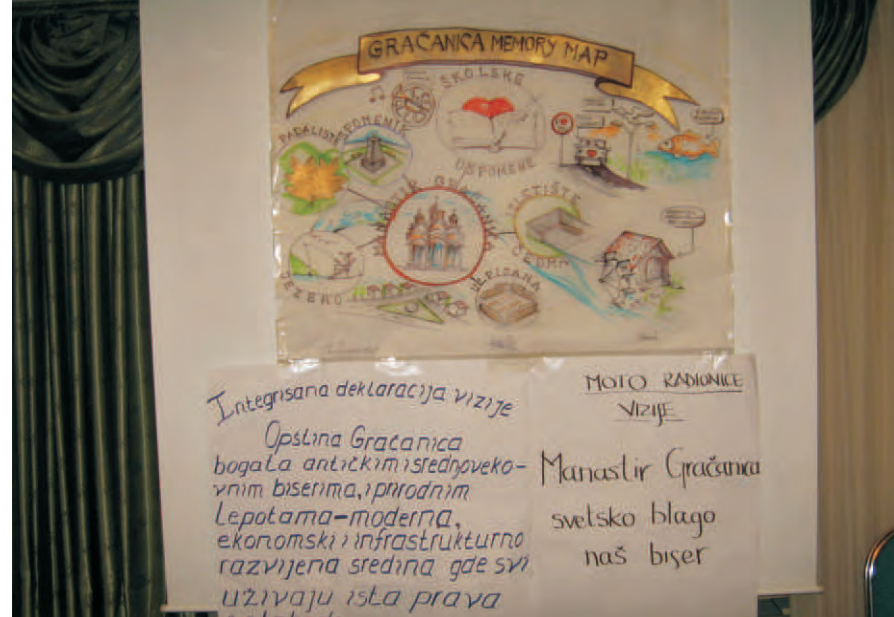 GRAČANICA MEMORY MAP
ŠKOLSKE
USPOMENE
SPOMENIK
PADALIŠTE
MANASTIR GRAČANICA
PISTIŠTE
ČESMA
JEZERO
ULPIJANA
Integrisana deklaracija vizije
Opština Gračanica
bogata antičkim i srednjoveko-
vnim biserima, i prirodnim
lepotama-moderna,
ekonomski i infrastrukturno
razvijena sredina gde svi
uživaju ista prava
MOTO RADIONICE
VIZIJE
Manastir Gračanica
svetsko blago
naš biser